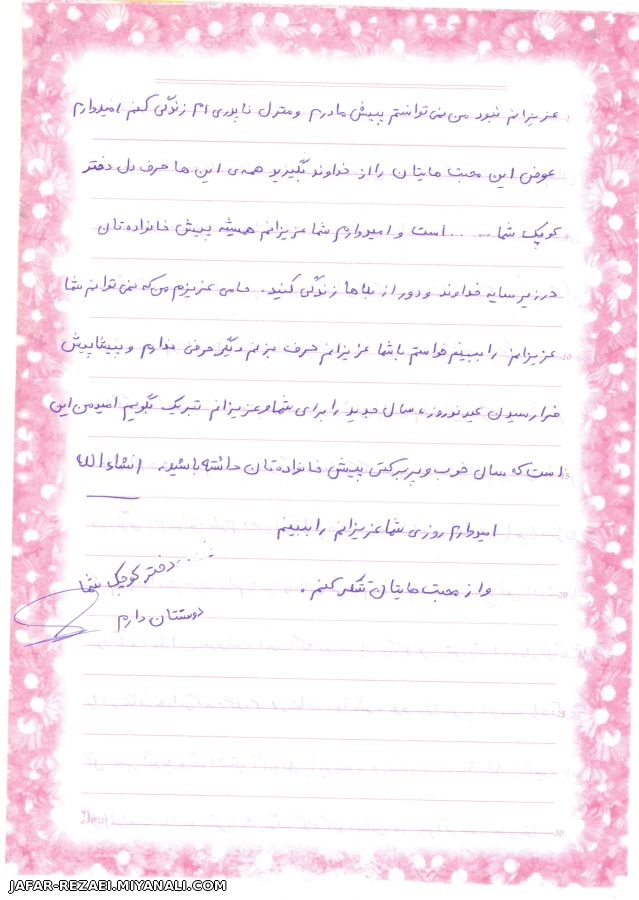 عزیزانم نبود من نمی توانستم پیش مادرم و منزل ناپدری ام زندگی کنم امیدوارم
عوض این محبت هایتان را از خداوند بگیرید همه ی این ها حرف دل دختر
کوچک شما ..... است و امیدوارم شما عزیزانم همیشه پیش خانواده تان
در زیر سایه خداوند و دور از بلاها زندگی کنید. حامی عزیزم من که نمی توانم شما
عزیزانم را ببینم خواستم با شما عزیزانم حرف بزنم دیگر حرفی ندارم و پیشاپیش
فرا رسیدن عید نوروز، سال جدید را برای شما و عزیزانم تبریک بگویم امید من این
است که سال خوب و پر برکتی پیش خانواده تان داشته باشید. انشاء الله
امیدوارم روزی شما عزیزانم را ببینم
و از محبت هایتان تشکر کنم.
دختر کوچک شما .....
دوستتان دارم
10
15
20
25
30
JAFAR-REZAEI.MIYANALI.COM